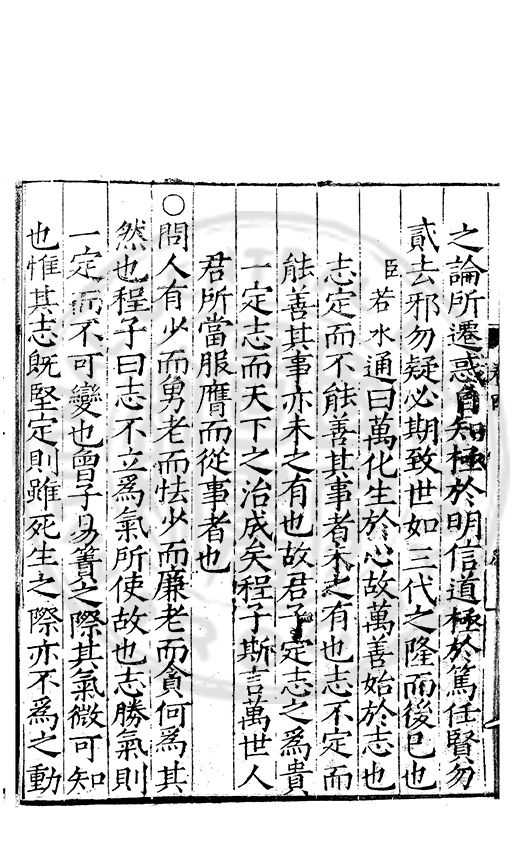 之論所遷惑自知極於明信道極於篤任賢勿
貳去邪勿疑必期致世如三代之隆而後已也
臣若水通曰萬化生於心故萬善始於志也
志定而不能善其事者未之有也志不定而
能善其事亦未之有也故君子定志之爲貴
一定志而天下之治成矣程子斯言萬世人
君所當服膺而從事者也
○問人有少而勇老而怯少而廉老而貪何爲其
然也程子曰志不立爲氣所使故也志勝氣則
一定而不可變也曾子易簀之際其氣微可知
也惟其志既堅定則雖死生之際亦不爲之動